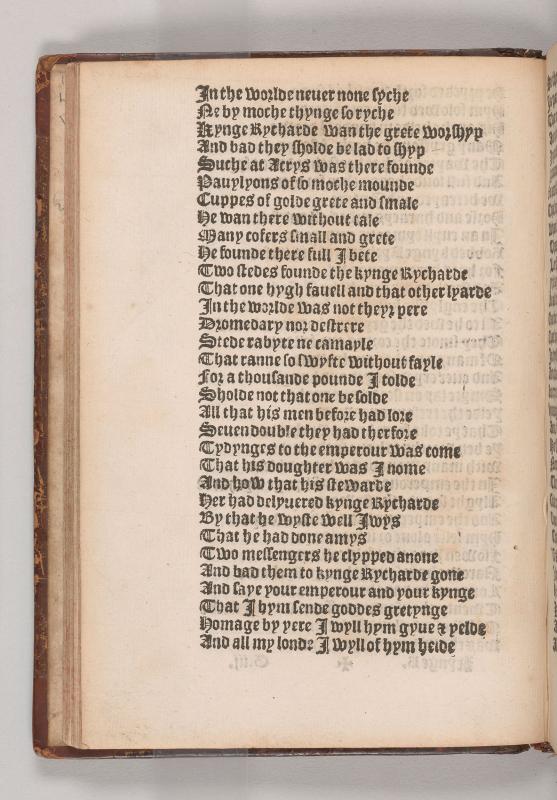 In the worlde neuer none syche
Ne by moche thynge so ryche
Kynge Rycharde wan the grete worshyp
And bad they sholde be lad to shyp
Suche at Acrys was there founde
Pauylyons of so moche mounde
Cuppes of golde grete and smale
He wan there without tale
Many cofers small and grete
He founde there full I bete
Two stedes founde the kynge Rycharde
That one hygh fauell and that other lyarde
In the worlde was not theyr pere
Dromedary nor destrere
Stede rabyte ne camayle
That ranne so swyfte without fayle
For a thousande pounde I tolde
Sholde not that one be solde
All that his men before had lore
Seuen double they had therfore
Tydynges to the emperour was come
That his doughter was I nome
And how that his stewarde
Her had delyuered kynge Rycharde
By that he wyste well Iwys
That he had done amys
Two messengers he clypped anone
And bad them to kynge Rycharde gone
And saye your emperour and your kynge
That I hym sende goddes gretynge
Homage by yere I wyll hym gyue ⁊ yelde
And all my londe I wyll of hym helde